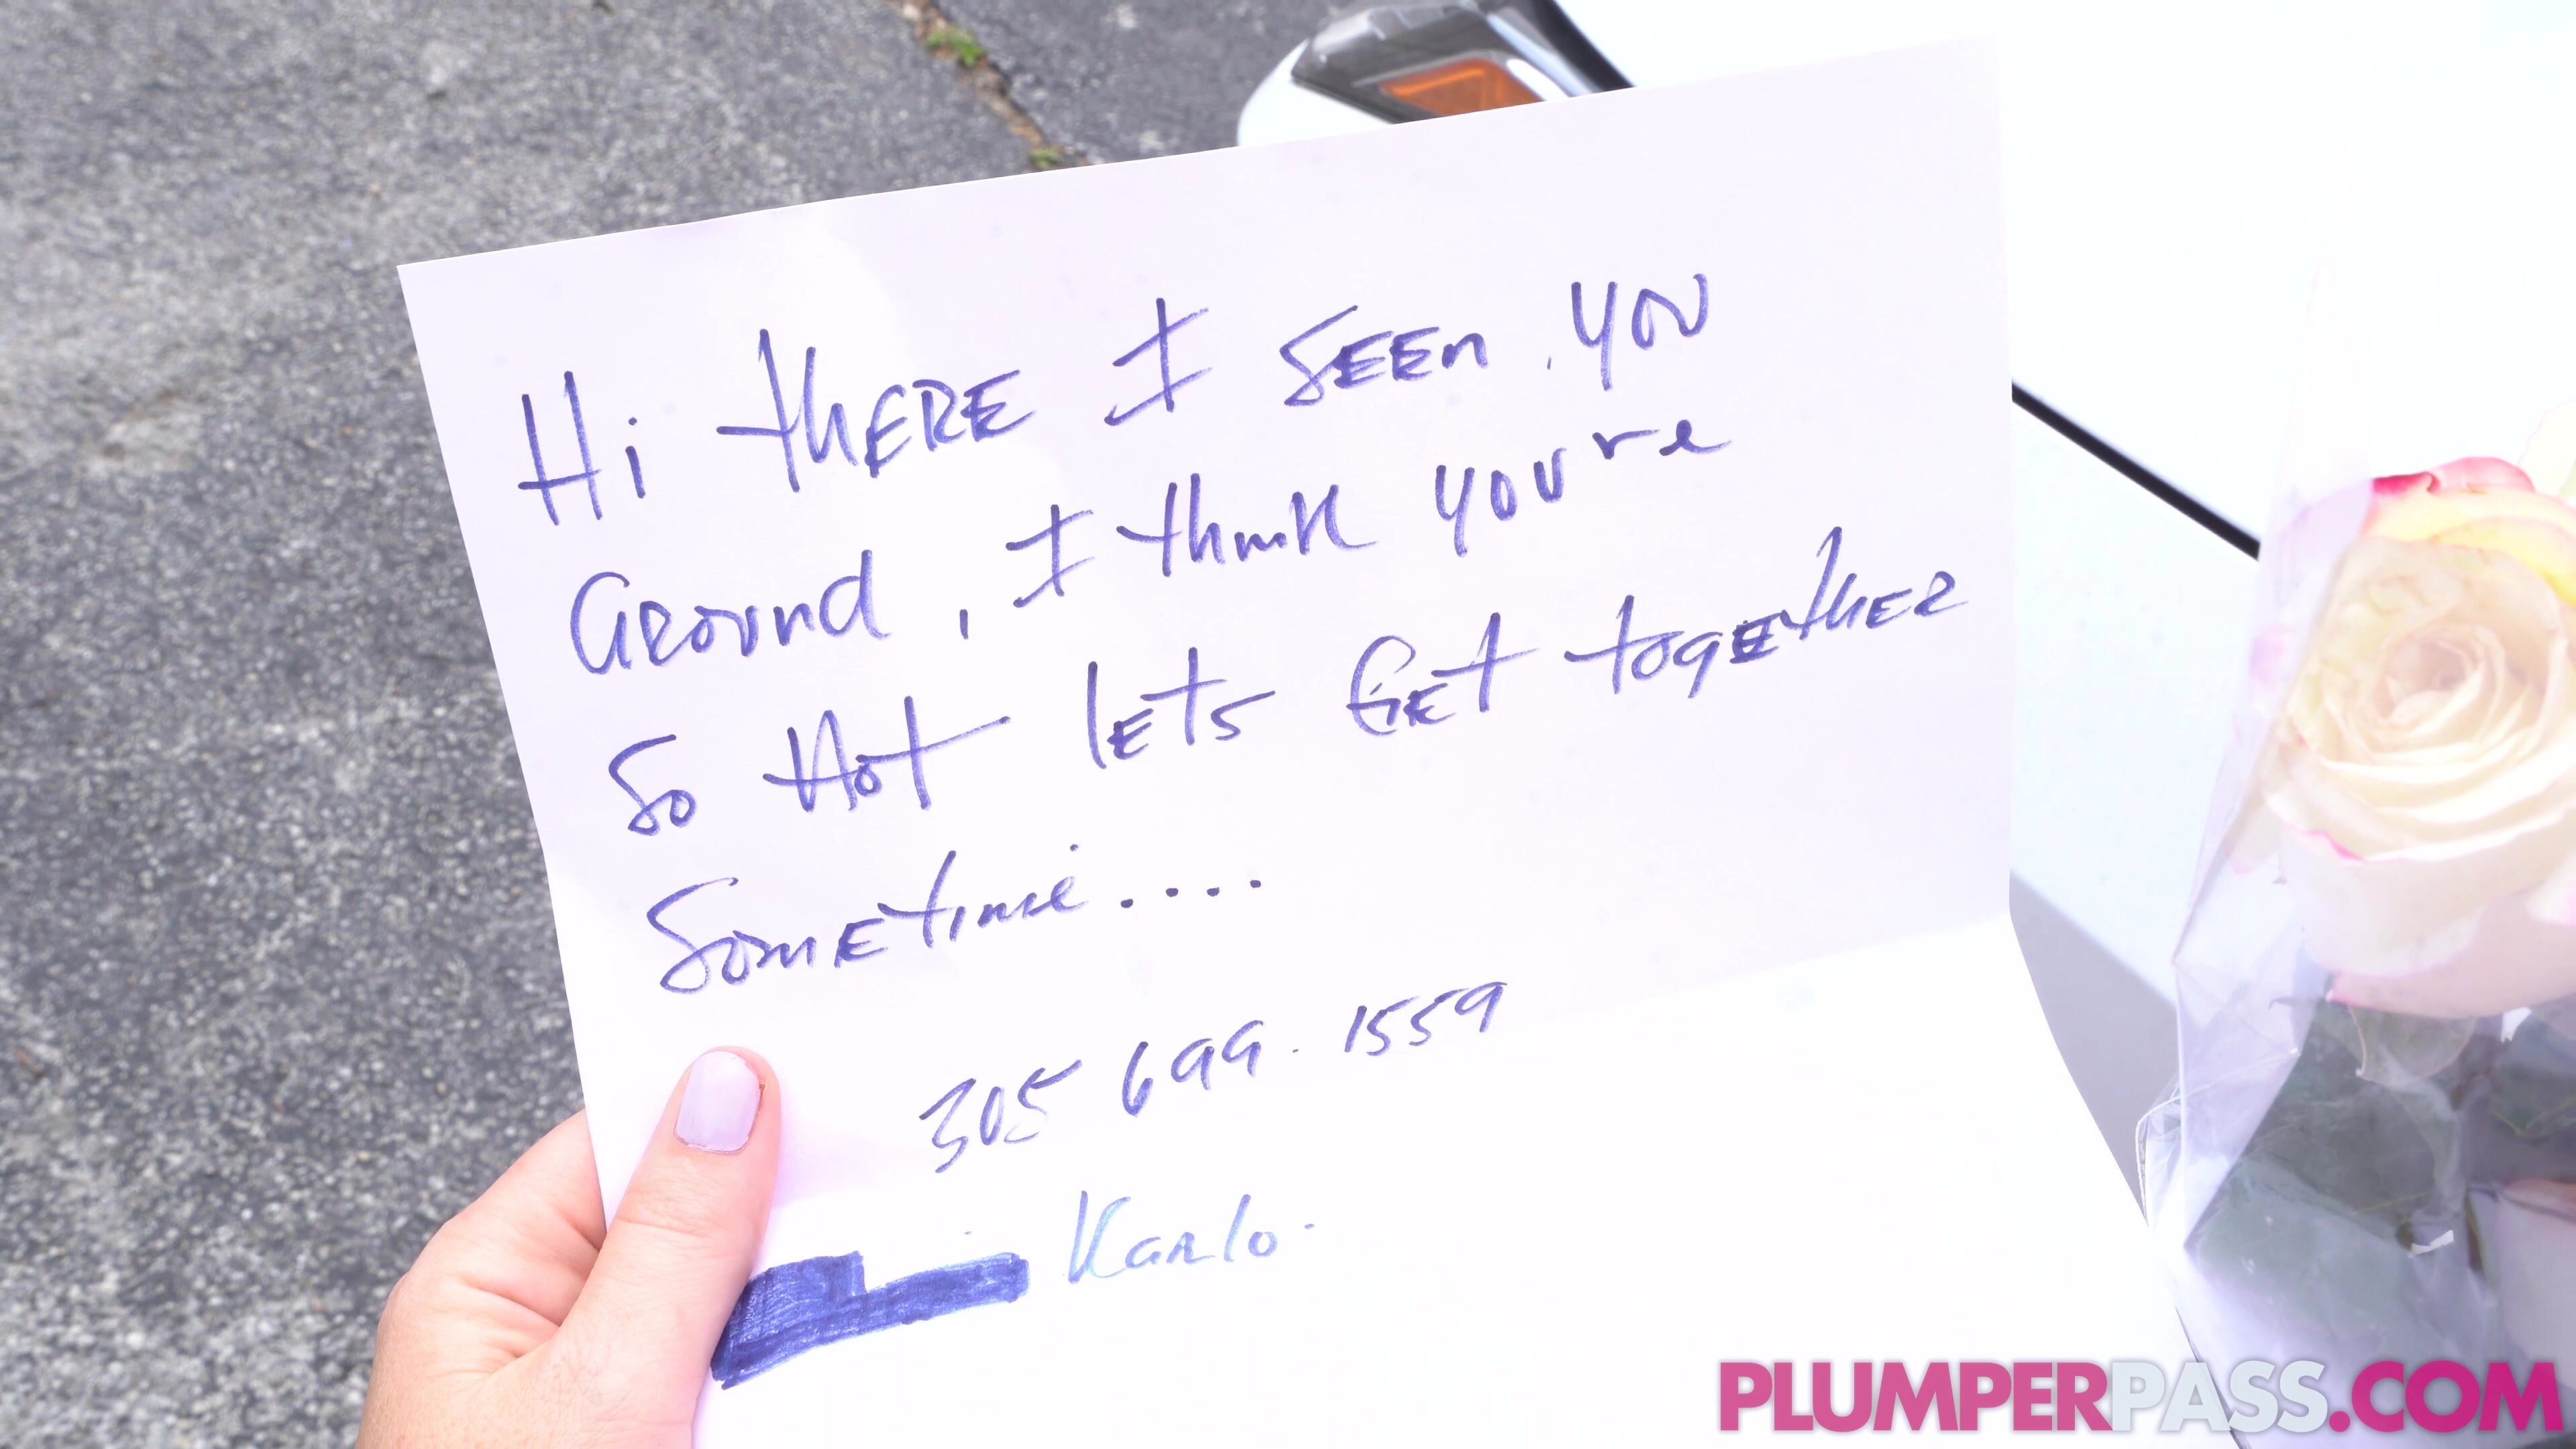 Hi thERE I SEEn you
Ground, I think you're
So Hot lets Get togEthER
SomEtime....
305 699. 1559
Karlo.
PLUMPERPASS.COM